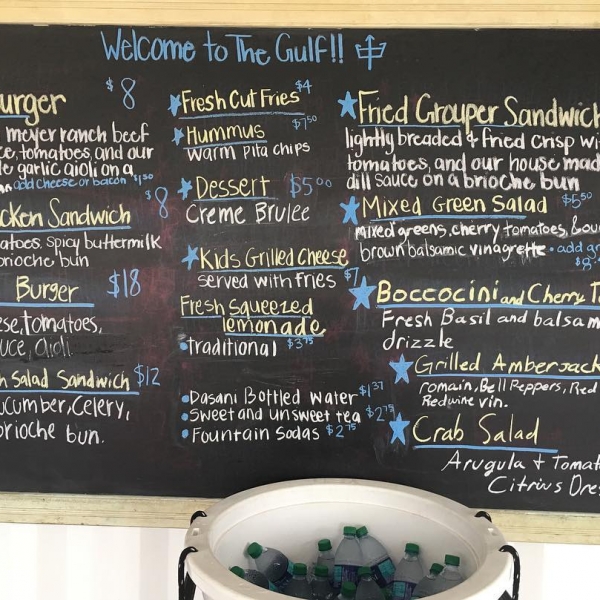 Welcome to The Gulf!!
urger $8
meyer ranch beef
ce, tomatoes, and our
le garlic aioli on a
add cheese or bacon $1.50
cken Sandwich $8
atoes, spicy buttermilk
brioche bun
Burger $18
ese, tomatoes,
uce, aioli
h Salad Sandwich $12
ucumber, Celery,
brioche bun.
Fresh Cut Fries $4
Hummus $7.50
warm pita chips
Dessert $5.00
Creme Brulee
Kids Grilled Cheese
served with fries $7
Fresh Squeezed
lemonade
• traditional $3.75
• Dasani Bottled Water $1.37
• Sweet and unsweet tea $2.75
• Fountain Sodas $2.75
Fried Grouper Sandwich
lightly breaded & fried crisp wi
tomatoes, and our house mad
dill sauce on a brioche bun
Mixed Green Salad $5.50
mixed greens, cherry tomatoes,
brown balsamic vinagrette • add
$8
Boccocini and Cherry To
Fresh Basil and balsam
drizzle
Grilled Amberjack
romain, Bell Peppers, Red
Redwine vin.
Crab Salad
Arugula + Tomat
Citrius Dres